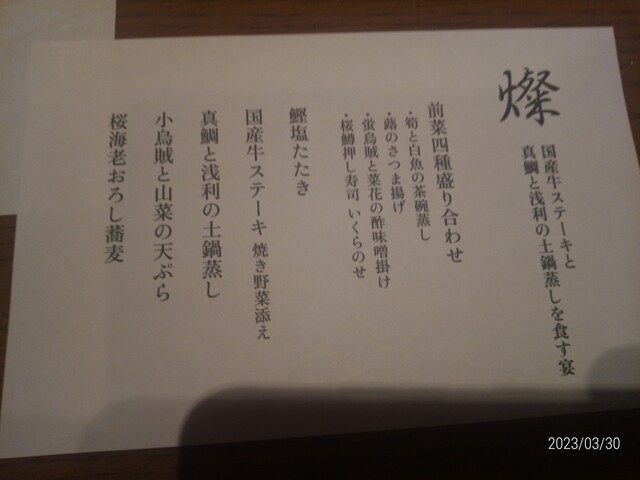 燦
国産牛ステーキと
真鯛と浅利の土鍋蒸しを食す宴
前菜四種盛り合わせ
・筍と白魚の茶碗蒸し
・蕗のさつま揚げ
・蛍烏賊と菜花の酢味噌掛け
・桜鱒押し寿司 いくらのせ
鰹塩たたき
国産牛ステーキ 焼き野菜添え
真鯛と浅利の土鍋蒸し
小烏賊と山菜の天ぷら
桜海老おろし蕎麦
2023/03/30